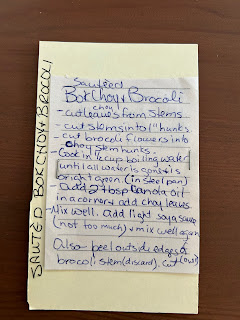 SAUTED BOKCHOY & BROCOLI
Sauteed
BokChoy & Brocoli
- cut choy leaves from stems
- cut stems into 1" hunks
- cut brocoli flowers into
choy stem hunks.
- Cook in 1/2 cup boiling water
until all water is gone & is
bright green. (in steel pan)
- add 2 tbsp Canola oil
in a corner & add choy leaves
- Mix well. add light soya sauce
(not too much) & mix well again
Also peel outside edge of
brocoli stem (discard), cut